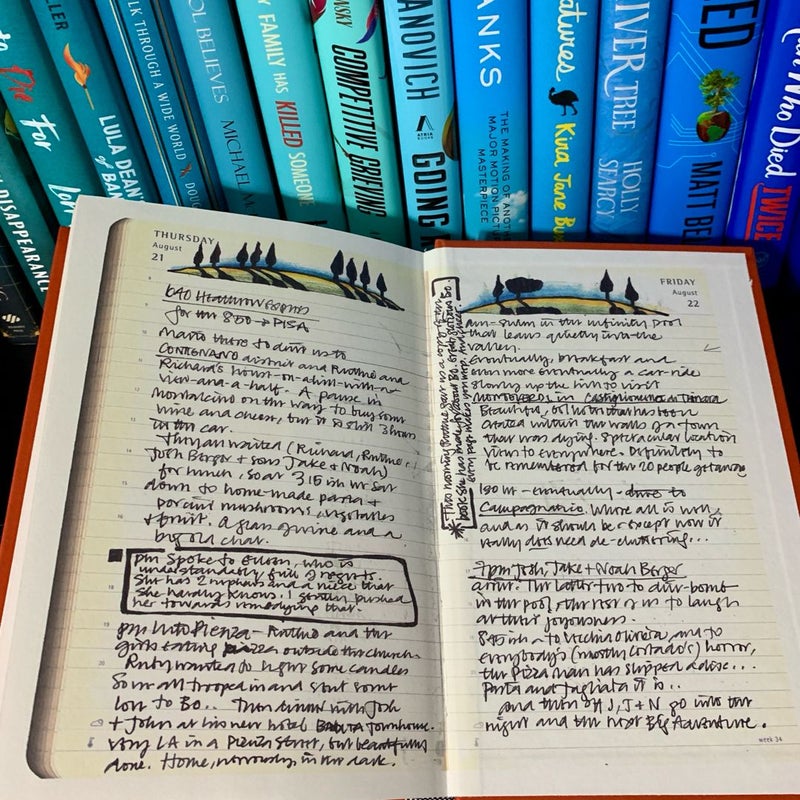 to Die For
Lor
DISAPPEARANCE
LLER
LULA DEAN'
of BAN
LK THROUGH A WIDE WORLD
DOUG
OL BELIEVES
MICHAEL
Y FAMILY HAS KILLED SOMEONE
NSKY
COMPETITIVE GRIEVING
ANOVICH
AFRIA
BOOKS
GOING
ANKS
THE MAKING OF ANOTHER
MAJOR MOTION PICTURE
MASTERPIECE
eatures
Kina Jane Bu
RIVER TREE
HOLLY
SEARCY
ED
MATT BE
Who Died TWICE
THURSDAY
August
21
640 Heathrow Express
for the 850 → PISA
Mario there to drive us to
CONTIGNANO district and Ruthie and
Richard's house-on-a-hill-with-a
view-and-a-half. A pause in
Montalcino on the way to buy some
wine and cheese, but it is still 3 hours
in the car.
They all waited (Richard, Ruthie,
Josh Berger + sons Jake + Noah)
for lunch, so at 315 ish we sat
down to home-made pasta +
porcini mushrooms, vegetables
+ fruit. A glass of wine and a
big old chat.
pm Spoke to Eileen, who is
understandably full of regrets.
She has 2 nephews and a niece that
she hardly knows. I gently pushed
her towards remedying that.
8pm Into Pienza – Ruthie and the
girls eating pizza outside the church.
Ruby wanted to light some candles
So we all trooped in and sent some
love to Bo.. Then dinner with Josh
+ John at his new hotel Townhouse.
Very LA in a Pienza Street, but beautifully
done. Home, nervously, in the dark.
FRIDAY
August
22
*This morning Ruthie gave us a copy of the
book she has made for/about Bo. Every picture,
every page makes you weep, think
am – swim in the infinity pool
that leans quietly into the
valley.
Eventually, breakfast and
even more eventually a car-ride
slowly up the hill to visit
MONTEVERDI in Castiglioncello del Trinoro
Beautiful, boho hotel that has been
created within the walls of a town
that was dying. Spectacular location
views to everywhere. Definitely to
be remembered for the 20 people getaway
130 ish – eventually – drive to
Campagnatico. Where all is well
and as it should be – except now it
really does need de-cluttering...
7pm Josh, Jake + Noah Berger
arrive. The latter two to dive-bomb
in the pool, the rest of us to laugh
at their joyousness.
845 ish – to Vecchia Oliviera, and to
everybody's (mostly Corrado's) horror,
the pizza man has slipped a disc...
Pasta and Tagliata it is..
and then off J, J + N go into the
night and the next Big Adventure.
week 34